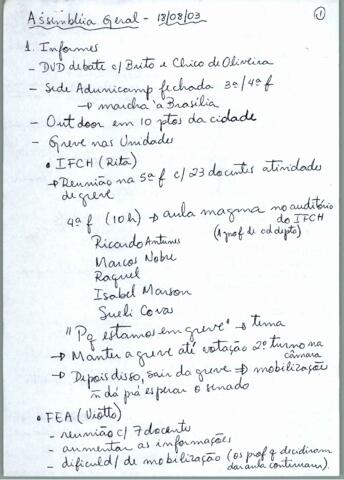 Assembléia Geral - 18/08/03
1
1. Informes
- DVD debate c/ Brito e Chico de Oliveira
- Sede Adunicamp fechada 3ª/4ª f
→ marcha à Brasília
- Outdoor em 10 ptos da cidade
- Greve nas Unidades
• IFCH (Rita)
→ Reunião na 5ª f c/ 23 docentes atividades
de greve
4ª f (10h) → aula magma no auditório
do IFCH
(1 prof de cd depto)
Ricardo Antunes
Marcos Nobre
Raquel
Isabel Marson
Sueli Costa
"Pq estamos em greve" → tema
→ Manter a greve até votação 2º turno na
câmara
→ Depois disso, sair da greve → mobilização
ñ dá prá esperar o senado
• FEA (Viotto)
- reunião c/ 7 docente
- aumentar as informações
- dificuld/ de mobilização (os prof q decidiram
dar aula continuam).